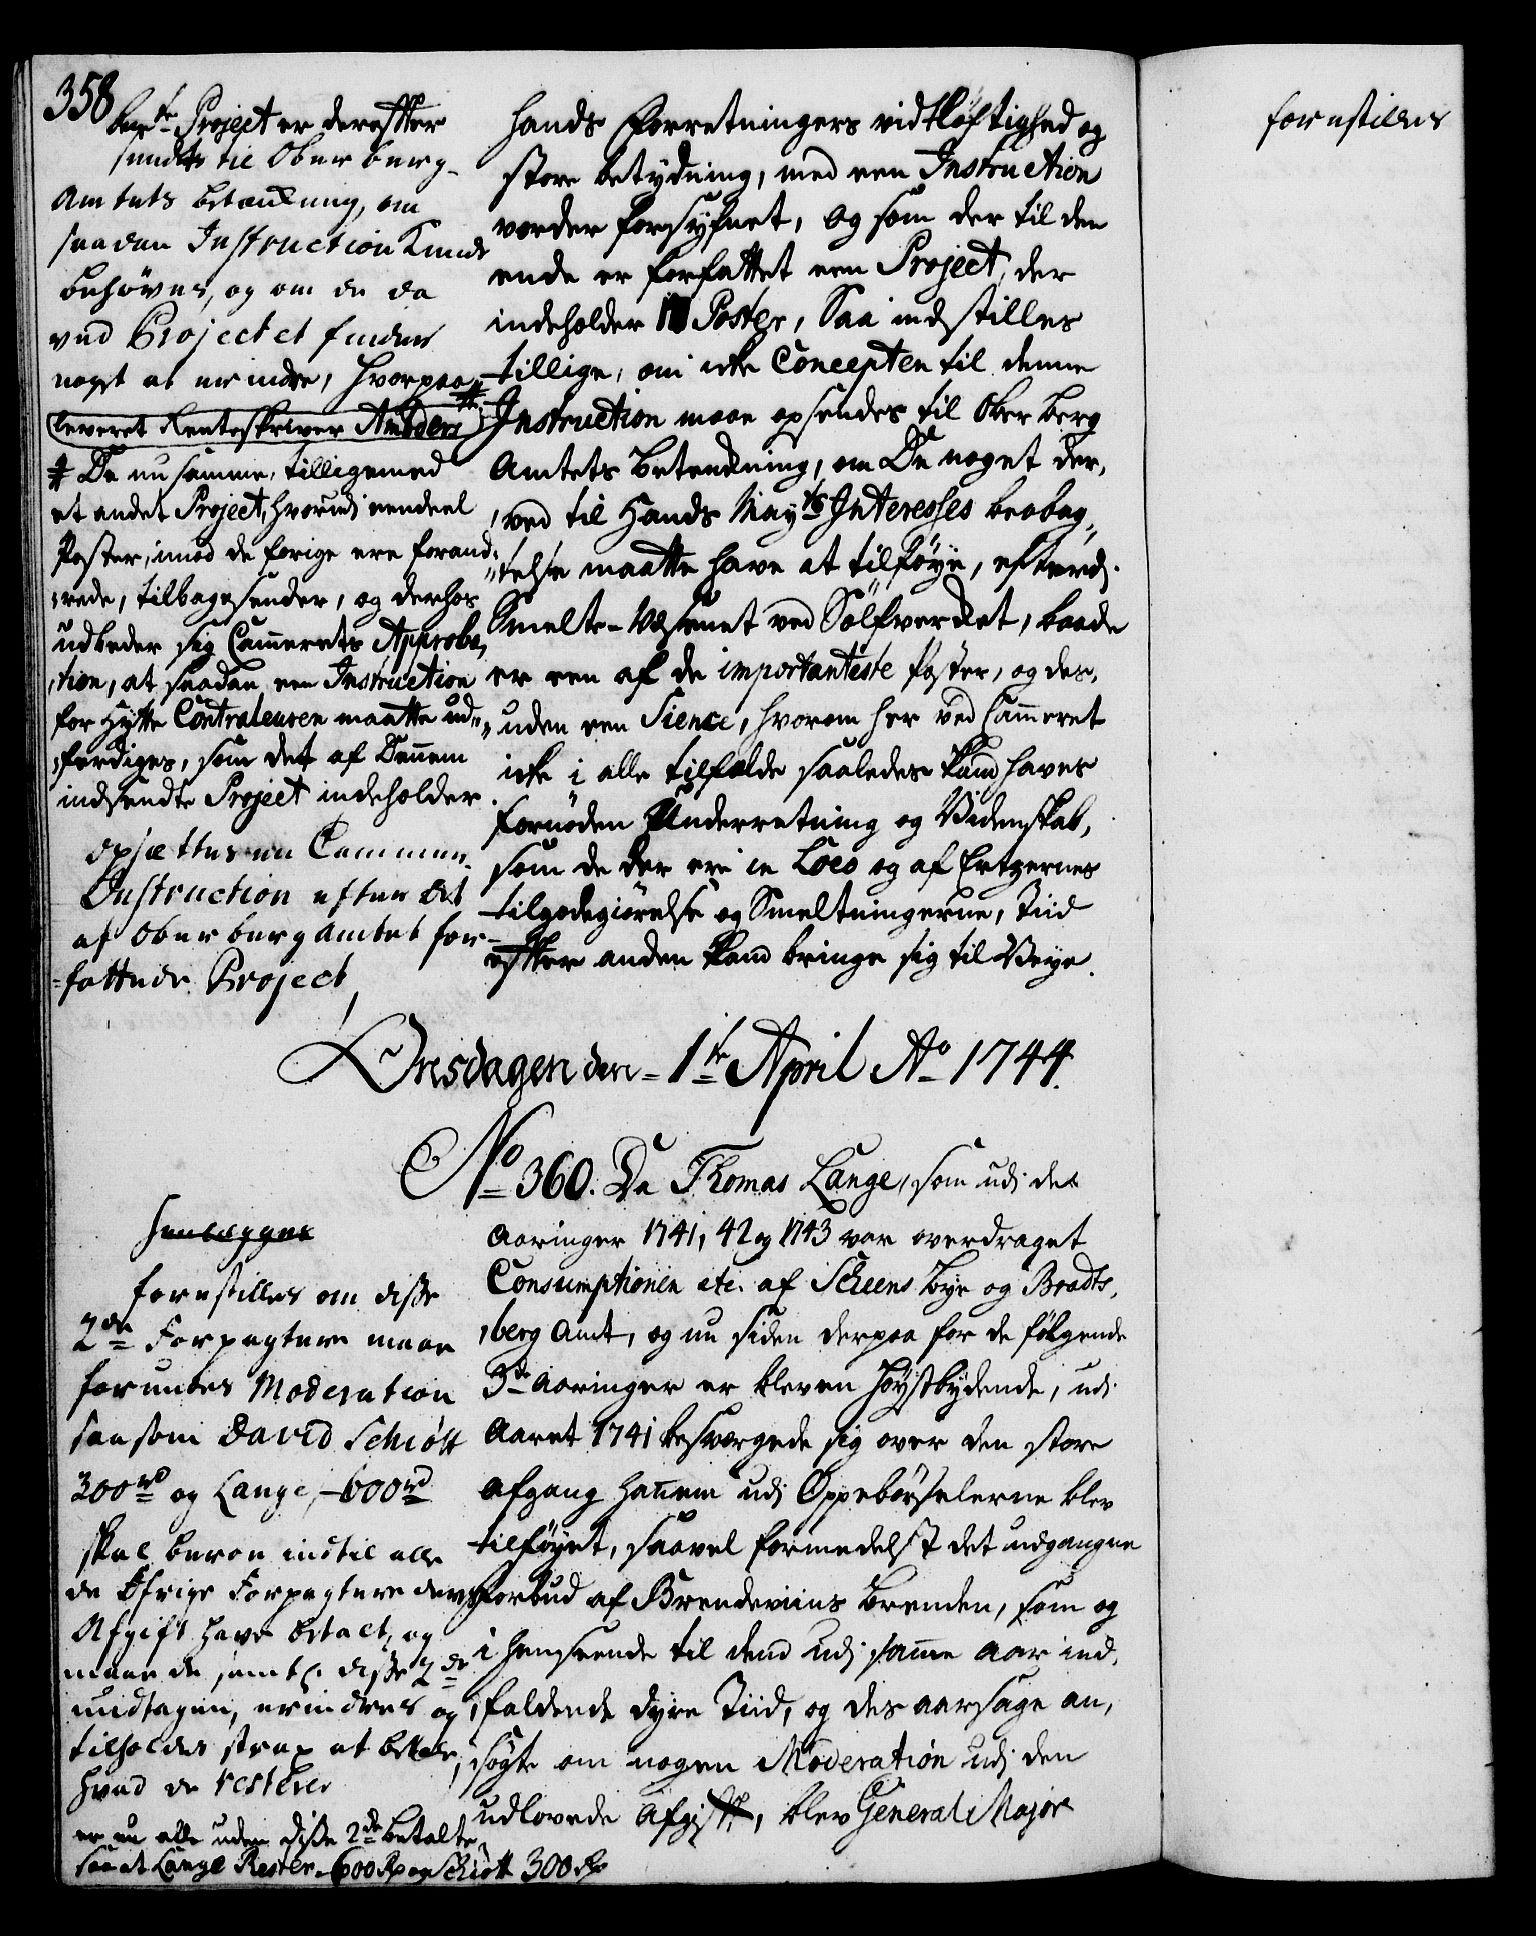 358
bem.te Project er derefter
sendt til Ober berg-
Amtets betænkning, om
saadan Instruction kunde
behöves, og om de da
ved Projectet finder
noget at erindre, hvorpaa
leveret Renteskriver
# Da nu samme, tilligemed
et andet Project, hvorudi eendeel
Poster, imod de forige ere forand-
rede, tilbagesender, og derhos
udbeder sig Cammerets Approba-
tion, at saadan een Instruction
for Hytte Contraleuren maatte ud-
ferdiges, som det af Dennem
indsendte Project indeholder.
opsættes en
Instruction efter det
af Ober berg Amtet for-
fattede Project,
hands Forretningers vidtløftighed og
store betydning, med een Instruction
vorder forsyhnet, og som der til den
ende er forfattet een Project, der
indeholder Poster, Saa indstilles
tillige, om icke Concepten til denne
Instruction maae opsendes til Ober berg
Amtets betenkning, om De noget der-
ved til Hands Mayts Interesses beobag-
telse maatte have at tilføye, efterdi
Smelte-Væsenet ved Sölfverket, baade
er een af de importanteste Poster, og des-
uden een Sience, hvorom her ved Cammeret
icke i alle tilfælde saaledes kand haves
fornøden Underretning og Videnskab,
som de der ere in Loco og af Ertzernes
tilgodegiørelse og Smeltningerne, Tiid
efter anden kand bringe sig til Veye.
Onsdagen den 1te April Ao 1744.
No 360. Da Thomas Lange, som udi de
Aaringer 1741, 42 og 1743 var overdraget
Consumptionen etc. af Scheens bye og Bradts-
berg Amt, og nu siden derpaa for de følgende
3de Aaringer er bleven høystbydende, udi
Aaret 1741 besværgede sig over den store
Afgang hannem udi Oppebørselerne blev
tilføyet, saavel formedelst det udgangne
Forbud af Brendeviins Brenden, som og
i henseende til dend udi samme Aar ind-
faldende dyre Tiid, og des aarsage an-
søgte om nogen Moderation udi den
udlovede Afgift, blev General Major
Henlægges
forestilles om disse
2de Forpagtere maae
forundes Moderation
saasom David Schiøtt
300 rd og Lange, 600 rd
skal beroe indtil alle
de Øfrige Forpagtere deres
Afgift have betalt, og
maae de samtl. disse 2de
undtagen, erindres og
tilholdes strax at betale,
hvad de restere
er nu alle uden disse 2de betalte,
saa at Lange Rester 600 Rd og Schiött 300 Rd
forestilles